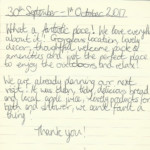 30th September - 1st October 2017
What a fantastic place! We love everything
about it! Gorgeous location, lovely
decor, thoughtful welcome pack &
amenities and just the perfect place
to enjoy the outdoors and relax!
We are already planning our next
visit! It was clean, tidy, delicious bread
and local apple juice, lovely products for
bath and shower, we can't fault a
thing!
Thank you!